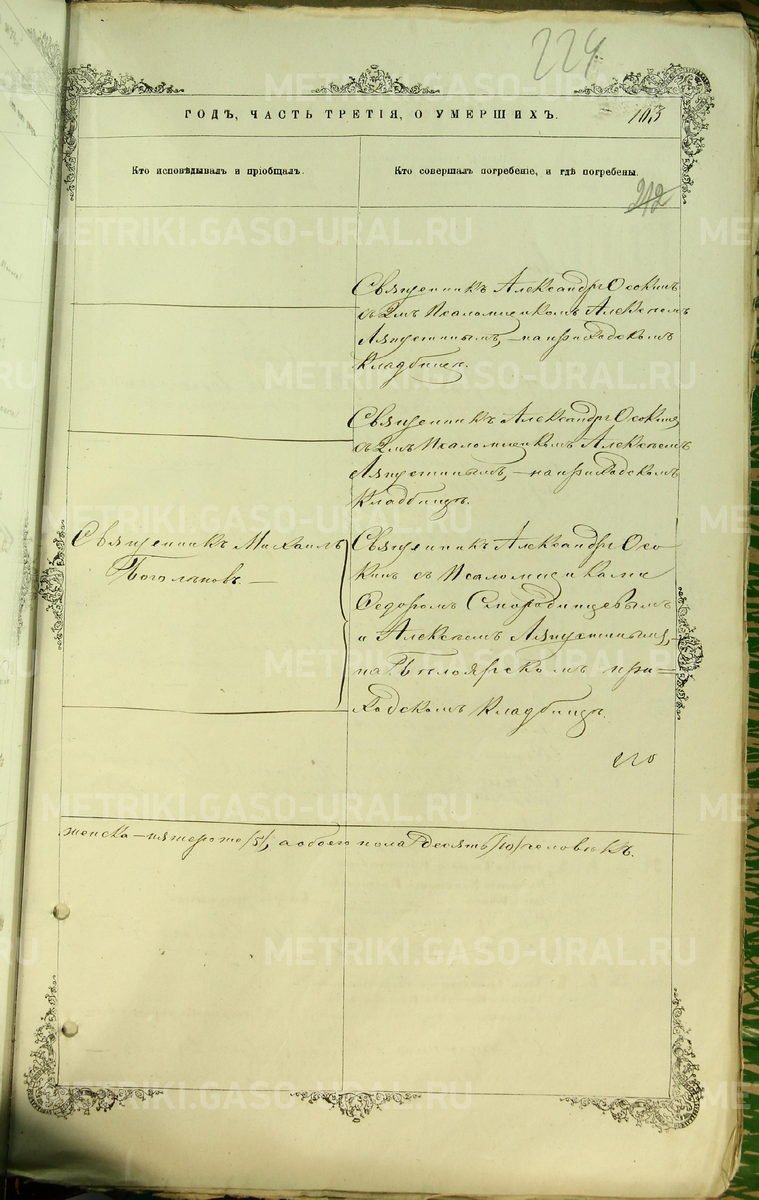 224
ГОДЪ, ЧАСТЬ ТРЕТІЯ, О УМЕРШИХЪ.
103
Кто исповѣдывалъ и пріобщалъ.
Кто совершалъ погребеніе, и гдѣ погребены.
212
Священникъ Александръ Осокинъ
съ 2мъ Псаломщикомъ Алексѣемъ
на приходскомъ
кладбищѣ.
Священникъ Александръ Осокинъ
съ 2мъ Псаломщикомъ Алексѣемъ
на приходскомъ
кладбищѣ.
Священникъ Михаилъ
Священникъ Александръ Осо
кинъ съ Псаломщиками
Ѳедоромъ Смородинцевымъ
и Алексѣемъ
на Бѣлоярскомъ при-
ходскомъ кладбищѣ.
женска - пятеро /5/, а обоего пола десять /10/ человѣкъ.
METRIKI.GASO-URAL.RU